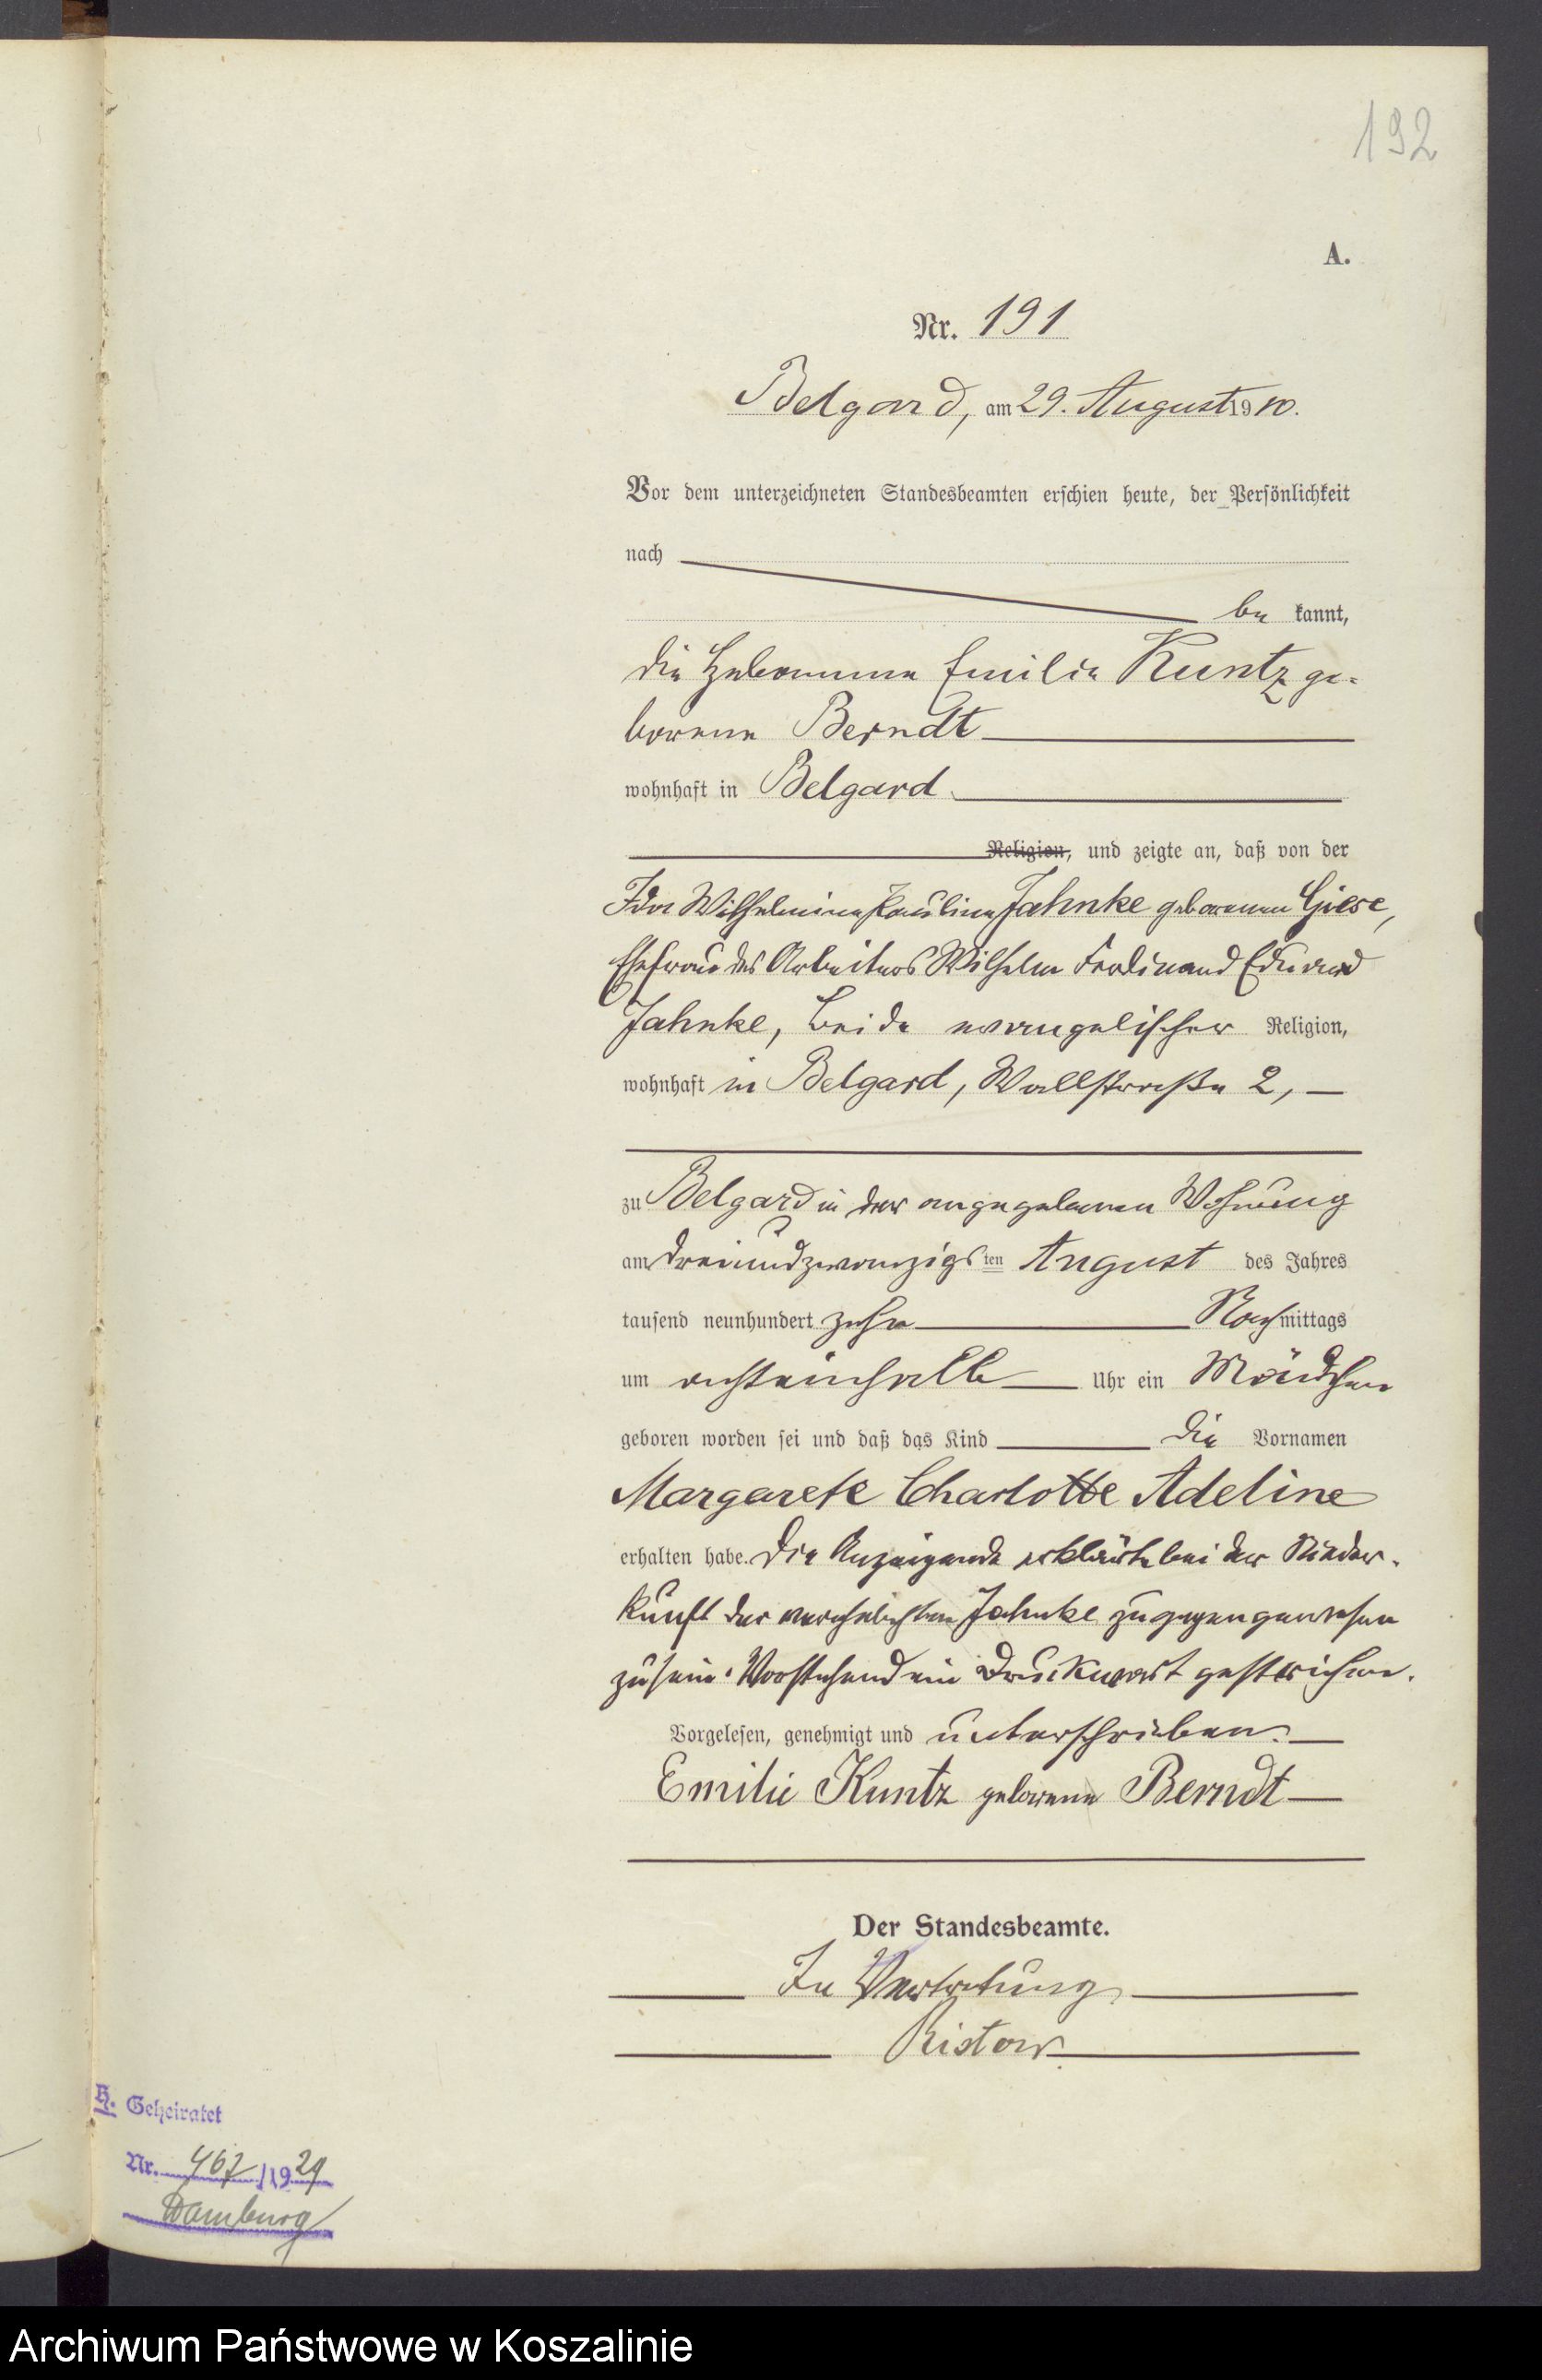 192
A.
Nr. 191
Belgard, am 29. August 1910.
Vor dem unterzeichneten Standesbeamten erschien heute, der Persönlichkeit
nach
be kannt,
die Hebamme Emilie Kuntz ge-
borene Berndt
wohnhaft in Belgard
Religion, und zeigte an, daß von der
Ida Wilhelmine Pauline Jahnke geborenen Giese,
Ehefrau des Arbeiters Wilhelm Ferdinand Eduard
Jahnke, beide evangelischer Religion,
wohnhaft in Belgard, Wallstraße 2,
zu Belgard in der angegebenen Wohnung
am dreiundzwanzigsten August des Jahres
tausend neunhundert zehn Nachmittags
um achteinhalb Uhr ein Mädchen
geboren worden sei und daß das Kind die Vornamen
Margarete Charlotte Adeline
erhalten habe. Die Anzeigende erklärte bei der Nieder-
kunft der verehelichten Jahnke zugegen gewesen
zu sein. Vorstehend ein Druckwort gestrichen.
Vorgelesen, genehmigt und unterschrieben.
Emilie Kuntz geborene Berndt
Der Standesbeamte.
In Vertretung
Ristow.
H. Geheiratet
Nr. 467/1929
Hamburg
Archiwum Państwowe w Koszalinie